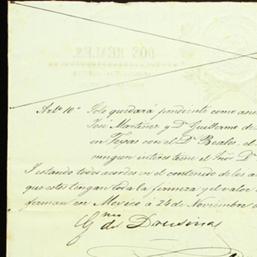 DOS REALES
Arto. 10o. Solo quedará pendiente como an
José Martinez y Dn. Guillermo d
en Texas con el Dr. Beales, el
ningun interes tiene el Señor D
I estando todos acordes en el contenido de los a
que estos tengan toda la firmeza y el valor
firman en Mexico á 24 de Noviembre
Gmo. de Drusina